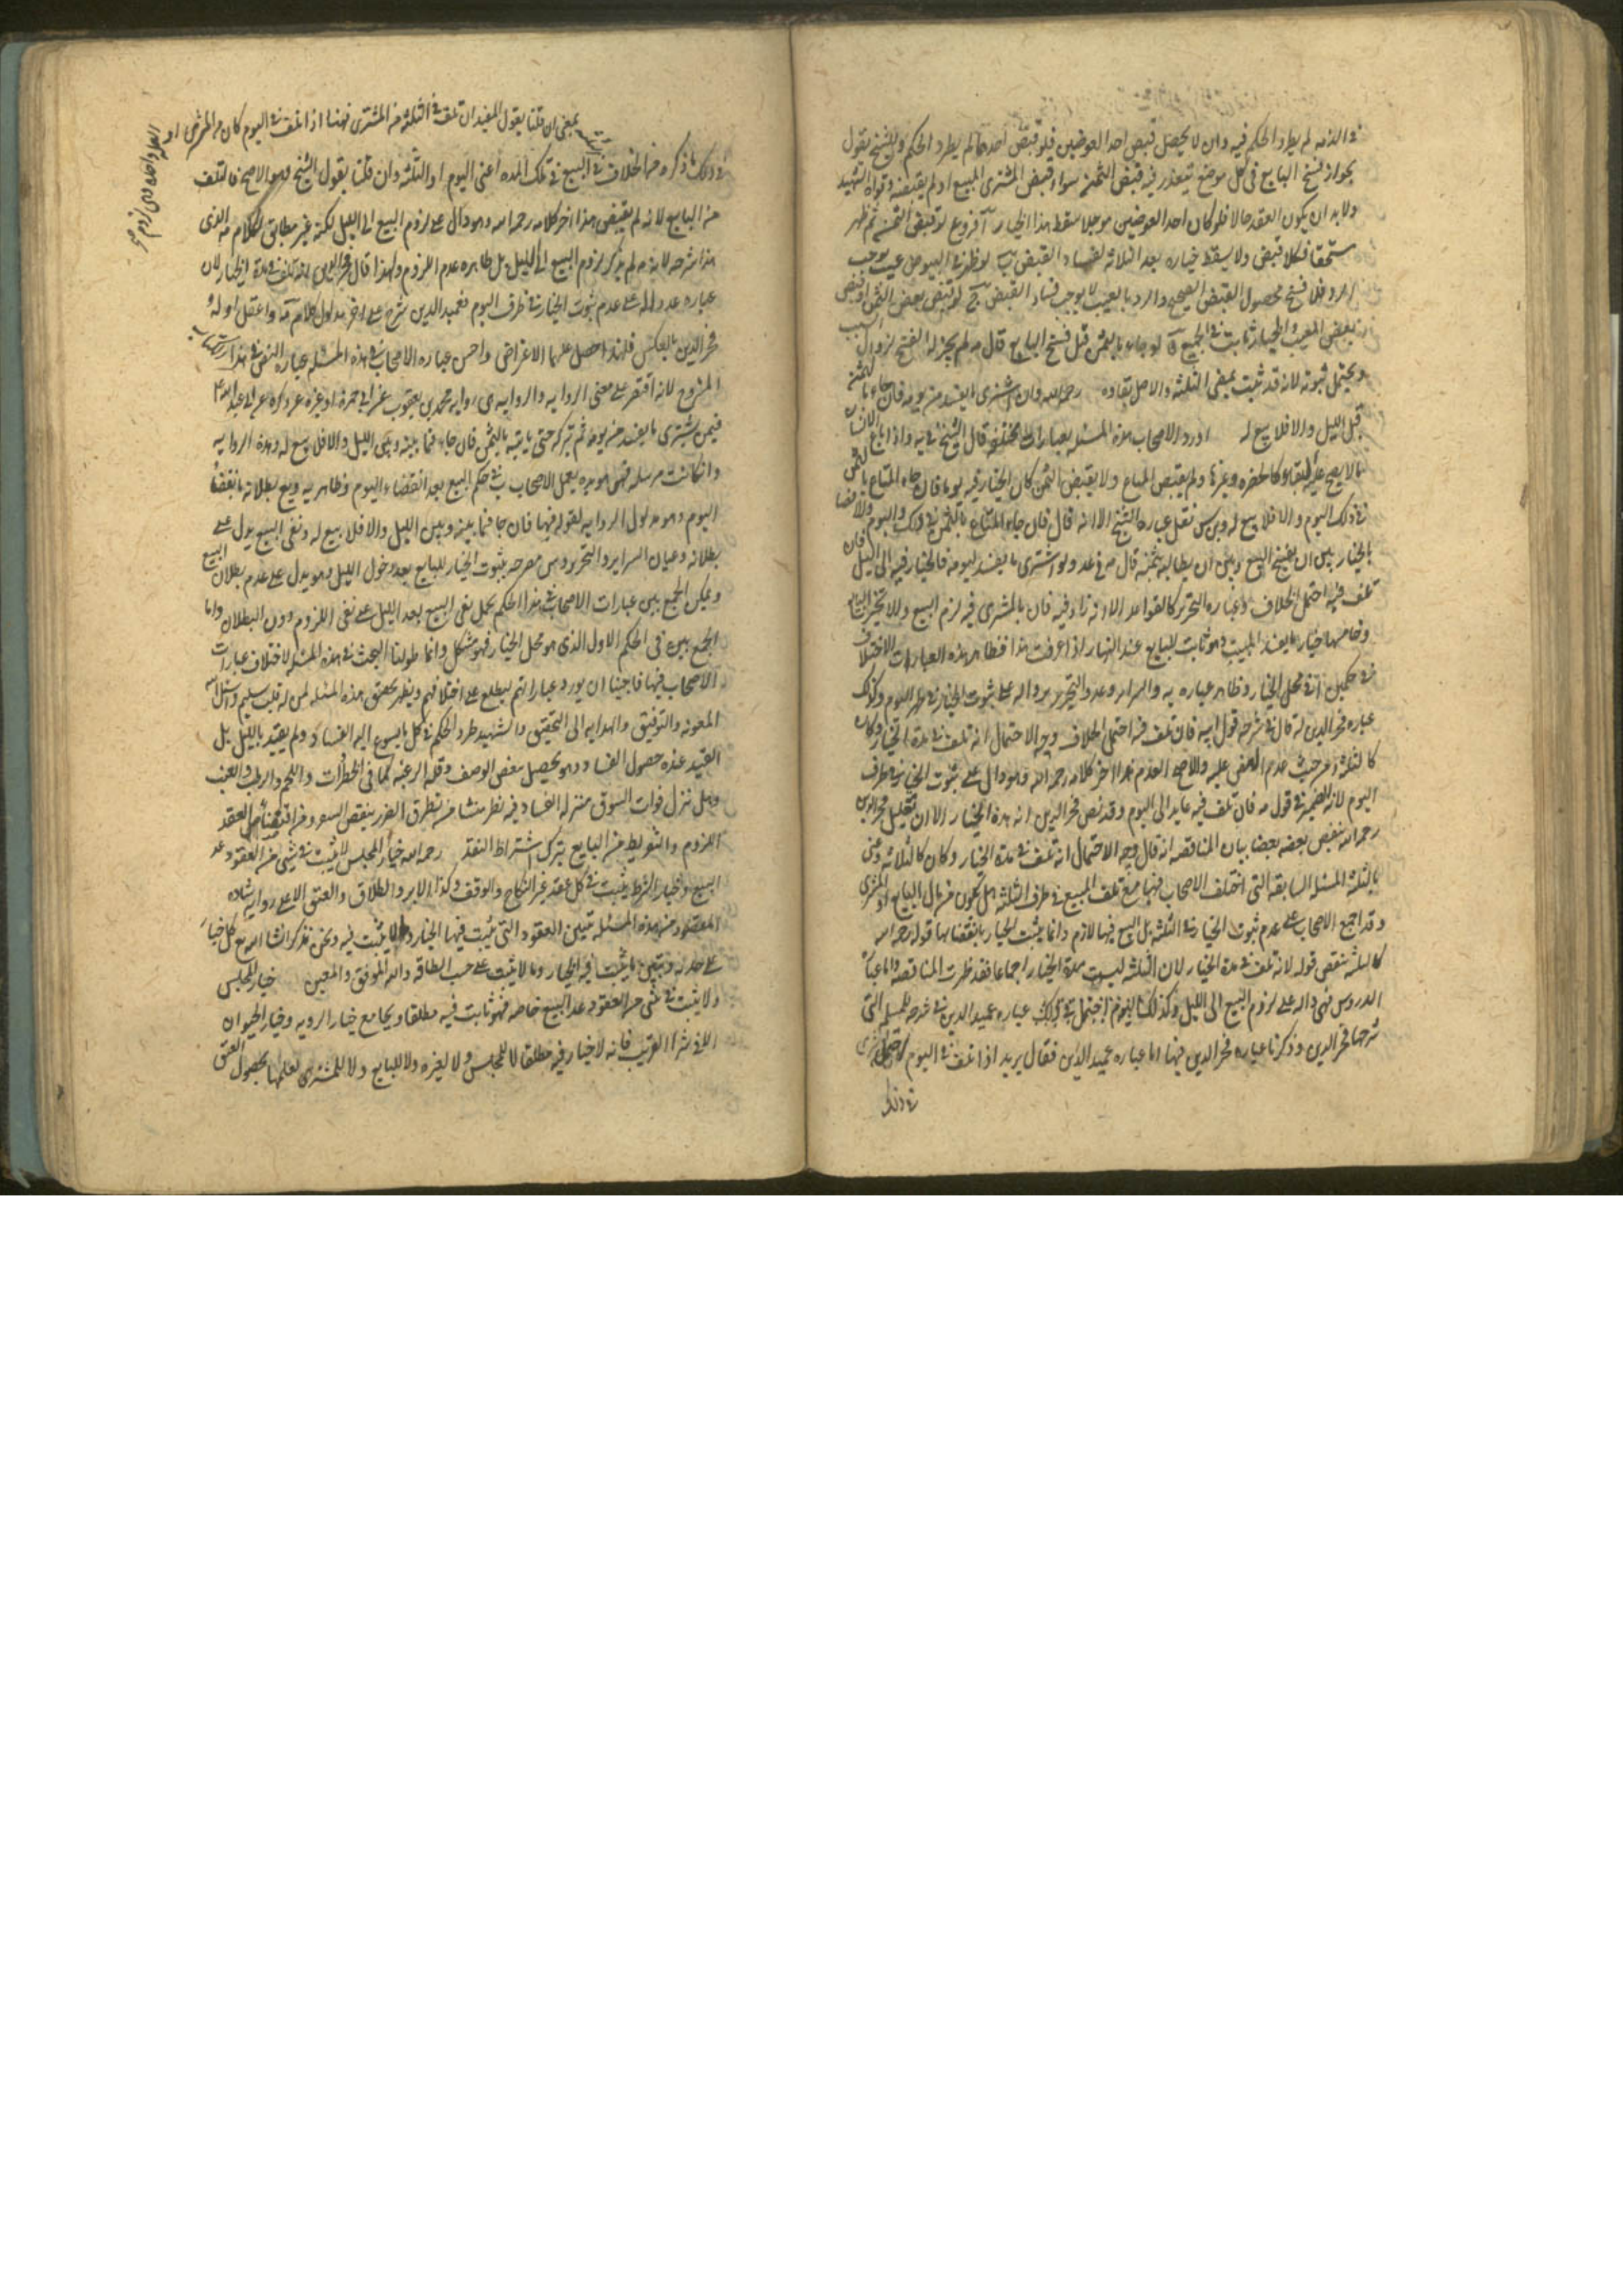 في الذمه لم يطرد الحكم فيه وان لا يحصل قبض احد العوضين فلو قبض أحدهما لم يطرد الحكم وللشيخ يقول
بجواز فسخ البايع في كل موضع يتعذر فيه قبض الثمن سواء قبض المشترى المبيع او لم يقبضه وقواه الشهيد
ولا بد ان يكون العقد حالا فلو كان احد العوضين موجلا سقط هذا الخيار فروع آ لو قبض الثمن ثم ظهر
مستحقا فكلا قبض ولا يسقط خياره بعد الثلاثه لفساد القبض ب لو ظهر في المبيع عيب يوجب
الرد فلا فسخ لحصول القبض الصحيح والرد بالعيب لا يوجب فساد القبض ج لو قبض بعض الثمن او قبض
بعض المبيع فالخيار ثابت في الجميع لو جاء بالثمن قبل فسخ البايع قال لم يجز له الفسخ لزوال السبب
ويحتمل ثبوته لانه قد ثبت بمضى الثلثه والاصل بقاوه رحمه الله وان اشترى ما يفسد من يومه فان جاء بالثمن
قبل الليل والا فلا بيع له اورد الاصحاب هذه المسئله بعبارات مختلفه قال الشيخ في يه واذا باع الانسان
ما لا يصح عليه البقاء كالخضره وغيرها ولم يقبض المبتاع ولا يقبض الثمن كان الخيار فيه يوما فان جاء المبتاع بالثمن
في ذلك اليوم والا فلا بيع له نقل عباره الشيخ الا انه قال فان جاء المبتاع بالثمن في ذلك اليوم والا فهو
بالخيار بين ان يفسخ البيع وبين ان يطالبه بثمنه قال في عد ولو اشترى ما يفسد ليومه فالخيار فيه الى الليل فان
تلف فيه احتمل الخلاف وعباره التحرير كالقواعد الا انه زاد فيه فان جاء المشترى فيه لزم البيع والا تخير البايع
وخامسها خيار ما يفسد المبيت وهو ثابت للبايع عند النهار اذا عرفت هذا فظاهر هذه العبارات الاختلاف
في حكمين آ في محل الخيار وظاهر عباره يه والسراير وعد والتحرير داله على ثبوت الخيار في اليوم وكذلك
عباره فخر الدين لانه قال في شرحه قول ابيه فان تلف فيه احتمل الخلاف وجه الاحتمال انه تلف في مدة الخيار وكان
كالثلثه من حيث عدم المضى عليه والاصح العدم هذا اخر كلامه رحمه الله وهو دال على ثبوت الخيار في طرف
اليوم لان الضمير في قوله فان تلف فيه عايد الى اليوم وقد نص فخر الدين انه مدة الخيار الا ان تعليل فخر الدين
رحمه الله ينقض بعضه بعضا بيان المناقضه انه قال وجه الاحتمال انه تلف في مدة الخيار وكان كالثلاثه وعنى
بالثلثه المسئله السابقه التى اختلف الاصحاب فيها مع تلف المبيع في طرف الثلثه هل يكون من مال البايع او المشترى
وقد اجمع الاصحاب على عدم ثبوت الخيار في الثلثه بل البيع فيها لازم وانما يثبت الخيار بانقضائها قوله رحمه الله
كالثلثه ينقض قوله لانه تلف في مدة الخيار لان الثلثه ليست مدة الخيار اجماعا فقد ظهرت المناقضه واما عباره
الدروس فهى داله على لزوم البيع الى الليل وكذلك عباره عميد الدين في شرحه للمسئله التى
شرحها فخر الدين وذكرنا عباره فخر الدين فيها اما عباره عميد الدين فقال يريد اذا تلف في اليوم احتمل
في ذلك
في ذلك ما ذكره من الخلاف في المبيع في تلك المده اعنى اليوم او الثلثه وان قلنا بقول الشيخ وهو الاصح فالتلف
من البايع لانه لم يقبض هذا اخر كلامه رحمه الله وهو دال على لزوم البيع الى الليل لكنه غير مطابق لكلام الذى
هذا شرحه لانه لم يذكر لزوم البيع الى الليل بل ظاهره عدم اللزوم ولهذا قال فخر الدين لانه تلف في مدة الخيار لان
عباره عد داله على عدم ثبوت الخيار في طرف اليوم فعميد الدين شرح على اخر مدلول كلام واغفل اوله
وفخر الدين بالعكس فلهذا حصل عليهما الاعتراض واحسن عباره الاصحاب في هذه المسئله عباره المص في هذا
المشروح لانه اقتصر على معنى الروايه والروايه هى روايه محمد بن يعقوب عن ابى حمزة او غيره عمن ذكره عن ابى عبد الله ع
فيمن يشترى ما يفسد من يومه ثم تركه حتى ياتيه بالثمن فان جاء فيما بينه وبين الليل والا فلا بيع له وهذه الروايه
وان كانت مرسله فهى مويده بعمل الاصحاب ب في حكم البيع بعد انقضاء اليوم وظاهر يه وبع بطلانه بانقضاء
اليوم وهو مدلول الروايه لقوله فيها فان جاء فيما بينه وبين الليل والا فلا بيع له ونفى البيع يدل على
بطلانه وعبارات السراير والتحرير وس مصرحه بثبوت الخيار للبايع بعد دخول الليل وهو يدل على عدم بطلان البيع
ويمكن الجمع بين عبارات الاصحاب في هذا الحكم بحمل نفى البيع بعد الليل على نفى اللزوم دون البطلان واما
الجمع بينها في الحكم الاول الذى هو محل الخيار فهو مشكل وانما طولنا البحث في هذه المسئله لاختلاف عبارات
الاصحاب فيها فاحببنا ان نورد عباراتهم ليطلع على اختلافهم ويظهر تحقيق هذه المسئله لمن له قلب سليم ونسئل الله
المعونه والتوفيق والهدايه الى التحقيق والشهيد طرد الحكم في كل ما يسرع اليه الفساد ولم يقيد بالليل بل
القيد عنده حصول الفساد وهو يحصل بنقص الوصف وقله الرغبه كما في الخضرات واللحم والرطب والعنب
وهل ينزل فوات السوق منزله الفساد فيه نظر منشاه من تطرق الضرر بنقص السعر ومن اقتضاء العقد
اللزوم والتفريط من البايع بترك اشتراط النقد رحمه الله خيار المجلس لا يثبت في شى من العقود عد
البيع وخيار الشرط يثبت في كل عقد غير النكاح والوقف وكذا الابراء والطلاق والعتق الا على روايه شاذه
المقصود من هذه المسئله تبيين العقود التى يثبت فيها الخيار وما لا يثبت فيه ونحن نذكر انشا الله مع كل خيار
على حدته ونبين ما يثبت فيه الخيار وما لا يثبت على حسب الطاقه والله الموفق والمعين خيار المجلس
ولا يثبت في شى من العقود عدا البيع خاصه فهو ثابت فيه مطلقا ويجامع خيار الرويه وخيار الحيوان
الا في شراء القريب فانه لا خيار فيه مطلقا لا للمجلس ولا لغيره ولا للبايع ولا للمشترى لعلمهما بحصول العتق
بمعنى ان قلنا بقول المفيد ان تلف في الثلثه من المشترى فهنا اذا تلف في اليوم كان من المشترى